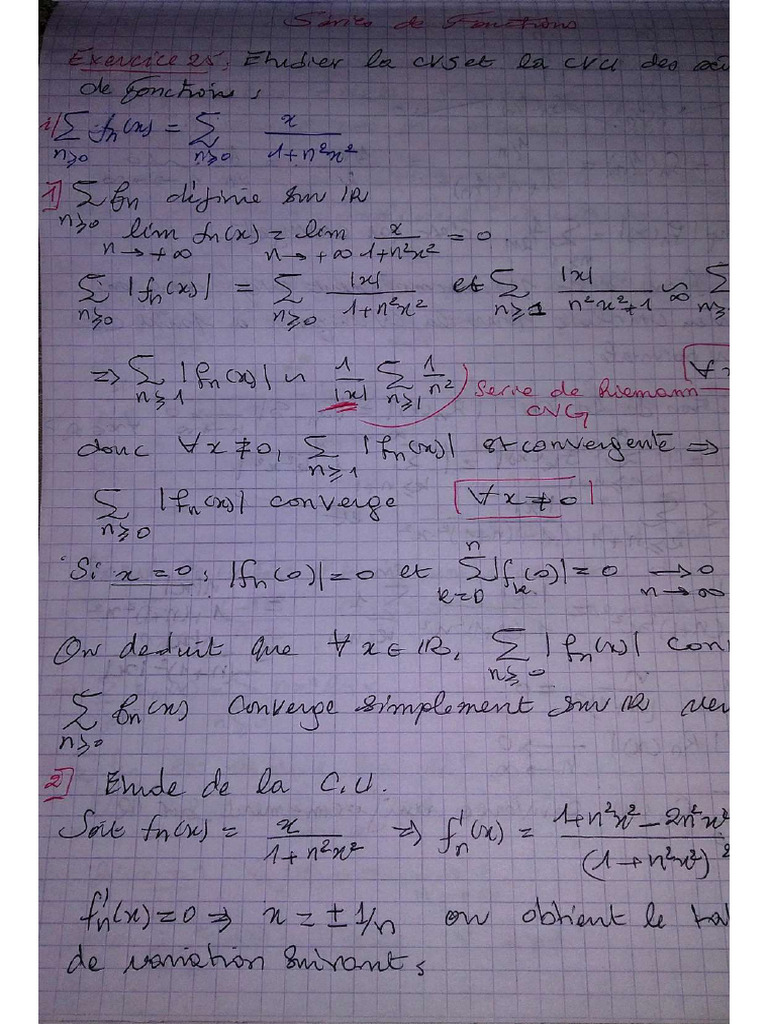 Séries de Fonctions
Exercice 25: Etudier la CVS et la CVU des
de Fonctions:
i/ ∑_{n≥0} fn(x) = ∑_{n≥0} x/(1+n²x²)
1] ∑_{n≥0} fn définie sur IR
lim_{n→+∞} fn(x) = lim_{n→+∞} x/(1+n²x²) = 0
∑_{n≥0} |fn(x)| = ∑_{n≥0} |x|/(1+n²x²) et ∑_{n≥1} |x|/(n²x²+1) ~ ∞ ∑
=> ∑_{n≥1} |fn(x)| ~ 1/|x| ∑_{n≥1} 1/n² Serie de Riemann
CVG
donc ∀x≠0, ∑_{n≥1} |fn(x)| est convergente =>
∑_{n≥0} |fn(x)| converge ∀x≠0
Si x=0: |fn(0)|=0 et ∑_{k=0}^{n} |fk(0)|=0 →0 n→∞
On deduit que ∀x∈IR, ∑_{n≥0} |fn(x)|
∑_{n≥0} fn(x) converge simplement sur IR
2] Etude de la C.U.
Soit fn(x) = x/(1+n²x²) => f'n(x) = (1+n²x²-2n²x²)/(1+n²x²)²
f'n(x)=0 => x=±1/n on obtient le
de variation suivant: